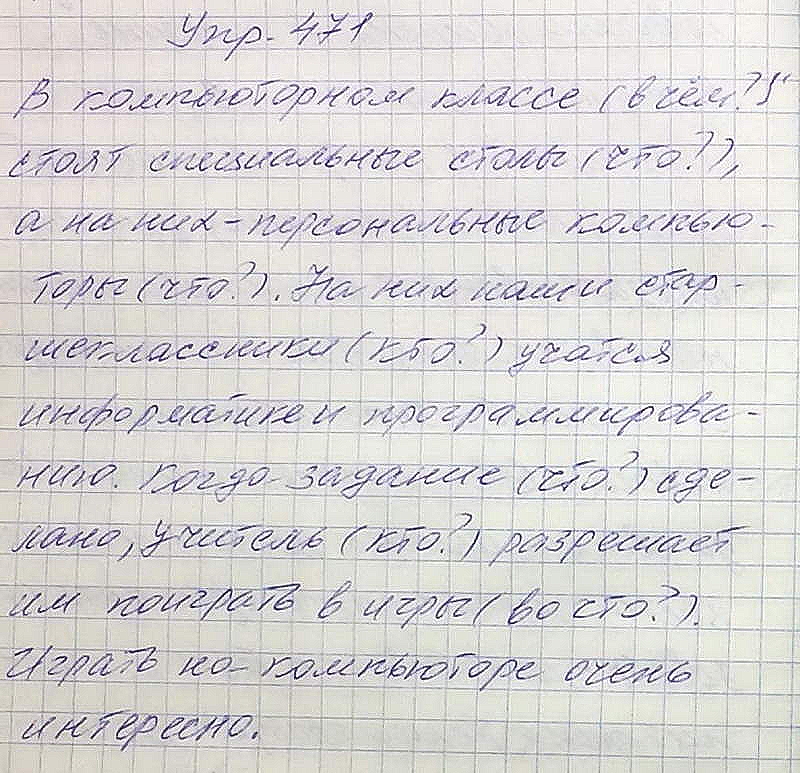 Упр. 471
В компьюторном классе (в чём?)
стоят специальные столы (что?),
а на них - персональные компью-
торы (что?). На них наши стар-
шеклассники (кто?) учатся
информатике и программирова-
нию. Когда задание (что?) сде-
лано, учитель (кто?) разрешает
им поиграть в игры (во что?).
Играть на компьюторе очень
интересно.